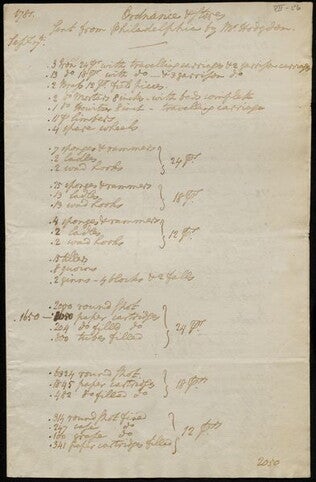 1781.
Ordnance & Stores
Sent from Philadelphia by Mr. Hodgdon.
Sept. 7.
3 Iron 24 prs with travelling carriages & 2 garrison carriages
13 do 18 prs with do & 3 garrison do
2 Brass 12 prs field pieces
2 do Morters 8 inch - with beds complete
1 do Howitzer 8 inch - travelling carriage
limbers
4 spare wheels
7 sponges & rammers
2 ladles
2 wad hooks
24 prs
15 sponges & rammers
13 ladles
13 wad hooks
18 prs
4 sponges & rammers
2 ladles
2 wad hooks
12 prs
2 ginns - 4 blocks & 2 falls
2000 round shot
1650 - paper cartridges
204 do filled do
300 tubes filled
24 prs
round shot
1845 paper cartridges
482 do filled do
18 prs
round shot fixed
247 case do
100 grape do
341 paper cartridges filled
12 prs
2050